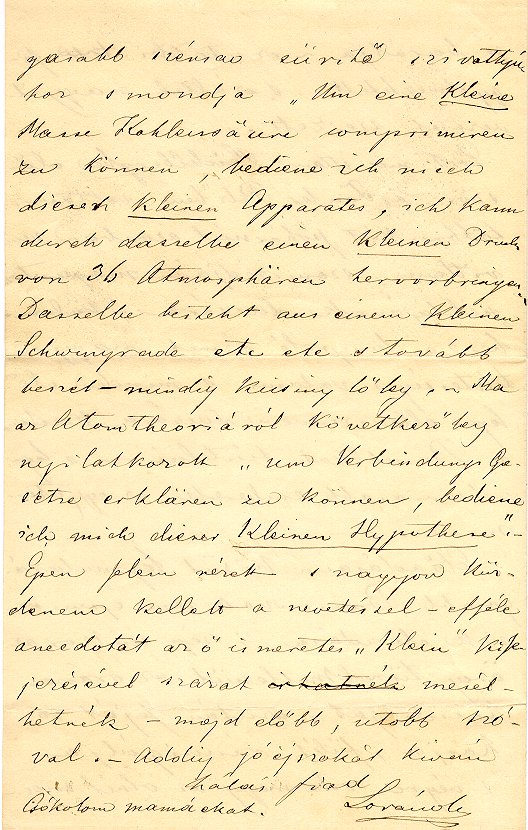 gasabb szénsav sűrítő szivattyú-
hoz s mondja „Um eine Kleine
Masse Kohlensäüre comprimiren
zu können, bediene ich mich
dieses kleinen Apparates, ich kann
durch dasselbe einen Kleinen Druck
von 36 Atmosphären hervorbringen
Dasselbe besteht aus einem Kleinen
Schwungrade etc etc s tovább
beszél – mindig kicsiny lőleg. – Ma
az Atomtheoriáról következőleg
nyilatkozott „um Verbindungs Ge-
setze erklären zu können, bediene
ich mich dieser Kleinen Hypothese”. –
Épen szemközt s nagyon küz-
denem kellett a nevetéssel – efféle
anecdotát az ő ismeretes „Klein” kife-
jezésével százat írhatnék mesél-
hetnék – majd előbb, utóbb szó-
val. – Addig jó éjszakát kíván
hálás fiad
Csókolom mamáékat. Loránd